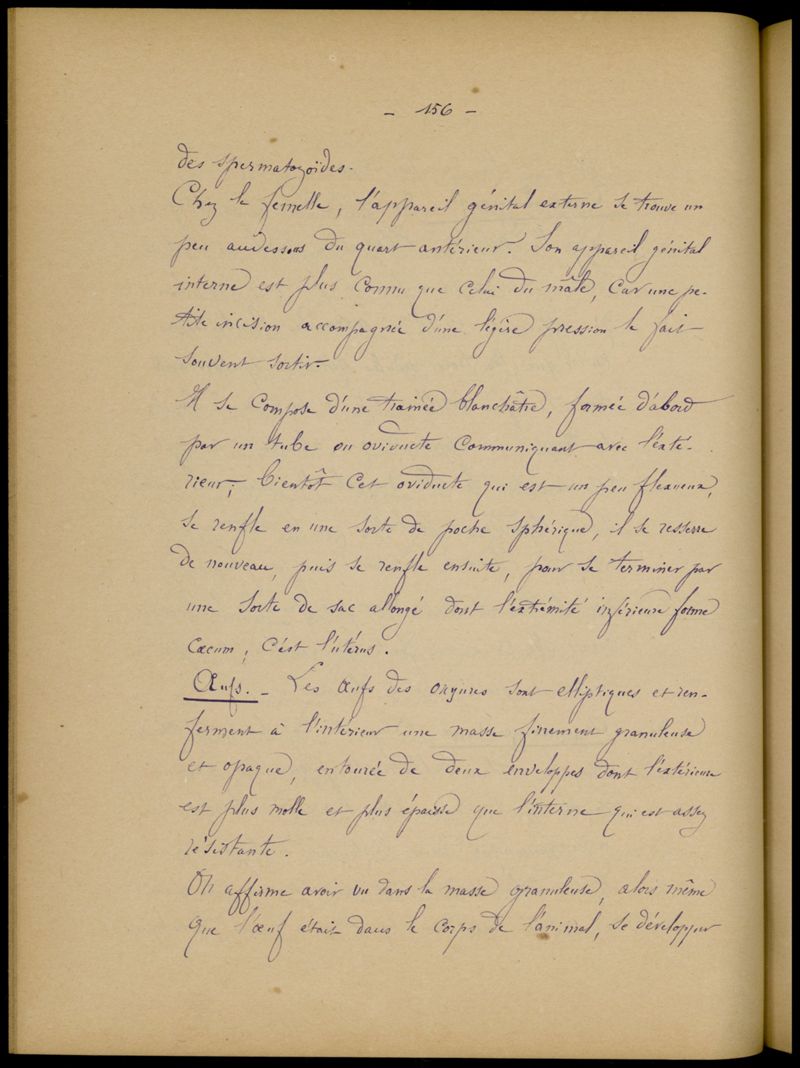 - 156 -
des spermatozoïdes.
Chez la femelle, l'appareil génital externe se trouve un
peu audessous du quart antérieur. Son appareil génital
interne est plus connu que celui du mâle, car une pe-
tite incision accompagnée d'une légère pression le fait
souvent sortir.
Il se compose d'une trainée blanchâtre, formée d'abord
par un tube ou oviducte communiquant avec l'exté-
rieur; bientôt cet oviducte qui est un peu flexueux,
se renfle en une sorte de poche sphérique, il se resserre
de nouveau, puis se renfle ensuite, pour se terminer par
une sorte de sac allongé dont l'extrémité inférieure forme
cœcum; c'est l'utérus.
Œufs. - Les œufs des oxyures sont elliptiques et ren-
ferment à l'intérieur une masse finement granuleuse
et opaque, entourée de deux enveloppes dont l'extérieure
est plus molle et plus épaisse que l'interne qui est assez
résistante.
On affirme avoir vu dans la masse granuleuse, alors même
que l'œuf était dans le corps de l'animal, se développer